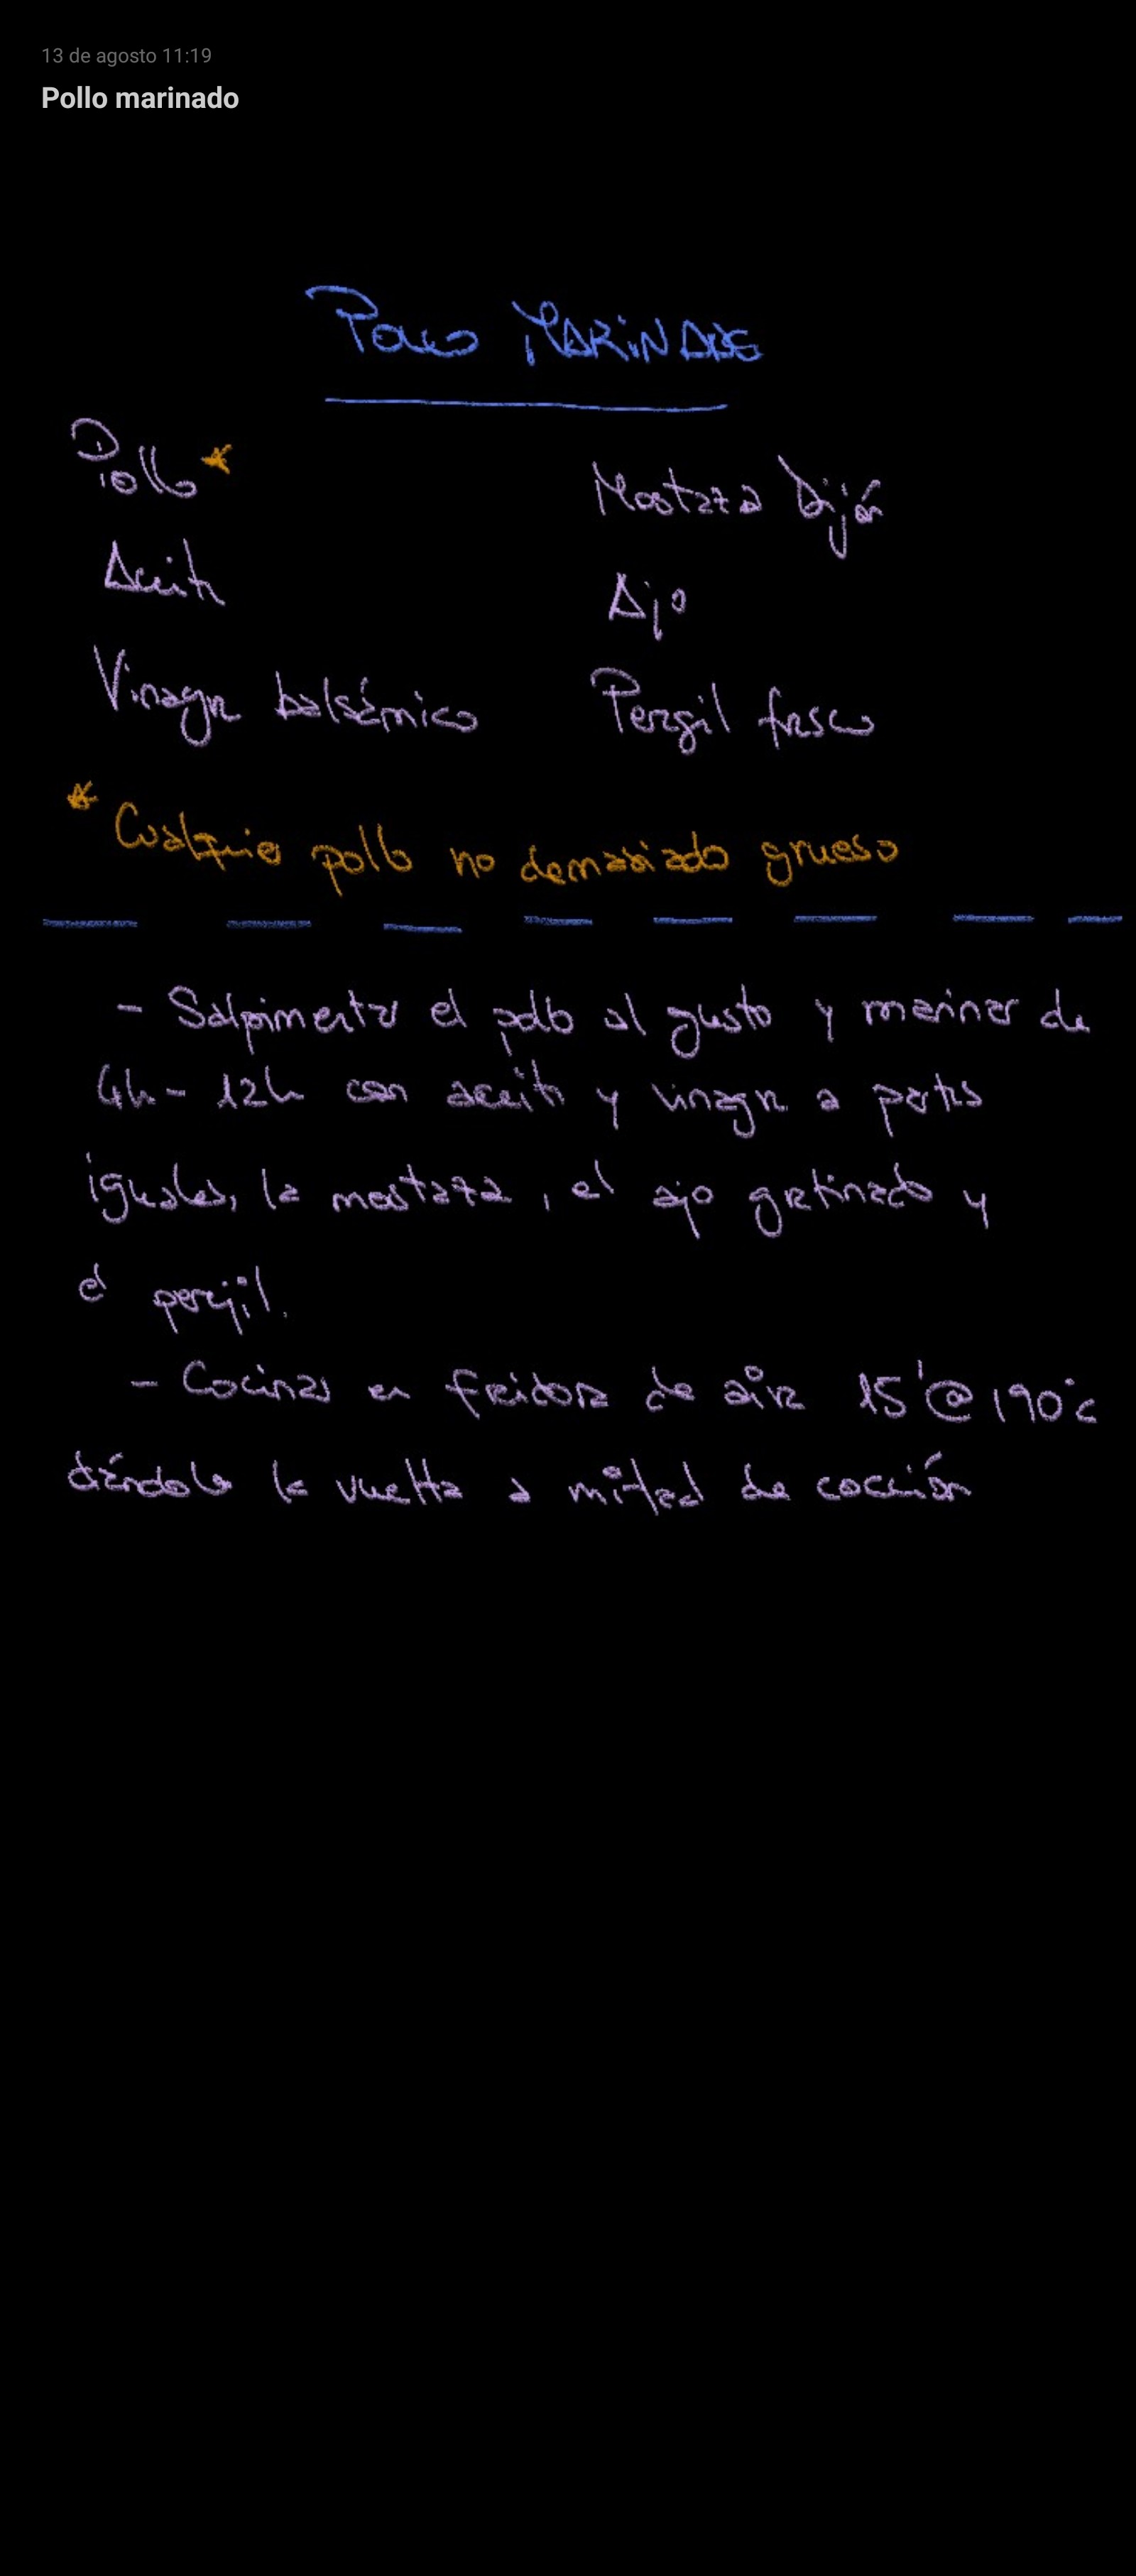 13 de agosto 11:19
Pollo marinado
POLLO MARINADO
Pollo * Mostaza Dijón
Aceite Ajo
Vinagre balsámico Perejil fresco
* Cualquier pollo no demasiado grueso
- Salpimentar el pollo al gusto y marinar de
4h - 12h con aceite y vinagre a partes
iguales, la mostaza, el ajo gratinado y
el perejil.
- Cocinar en freidora de aire 15' @ 190°c
dándole la vuelta a mitad de cocción